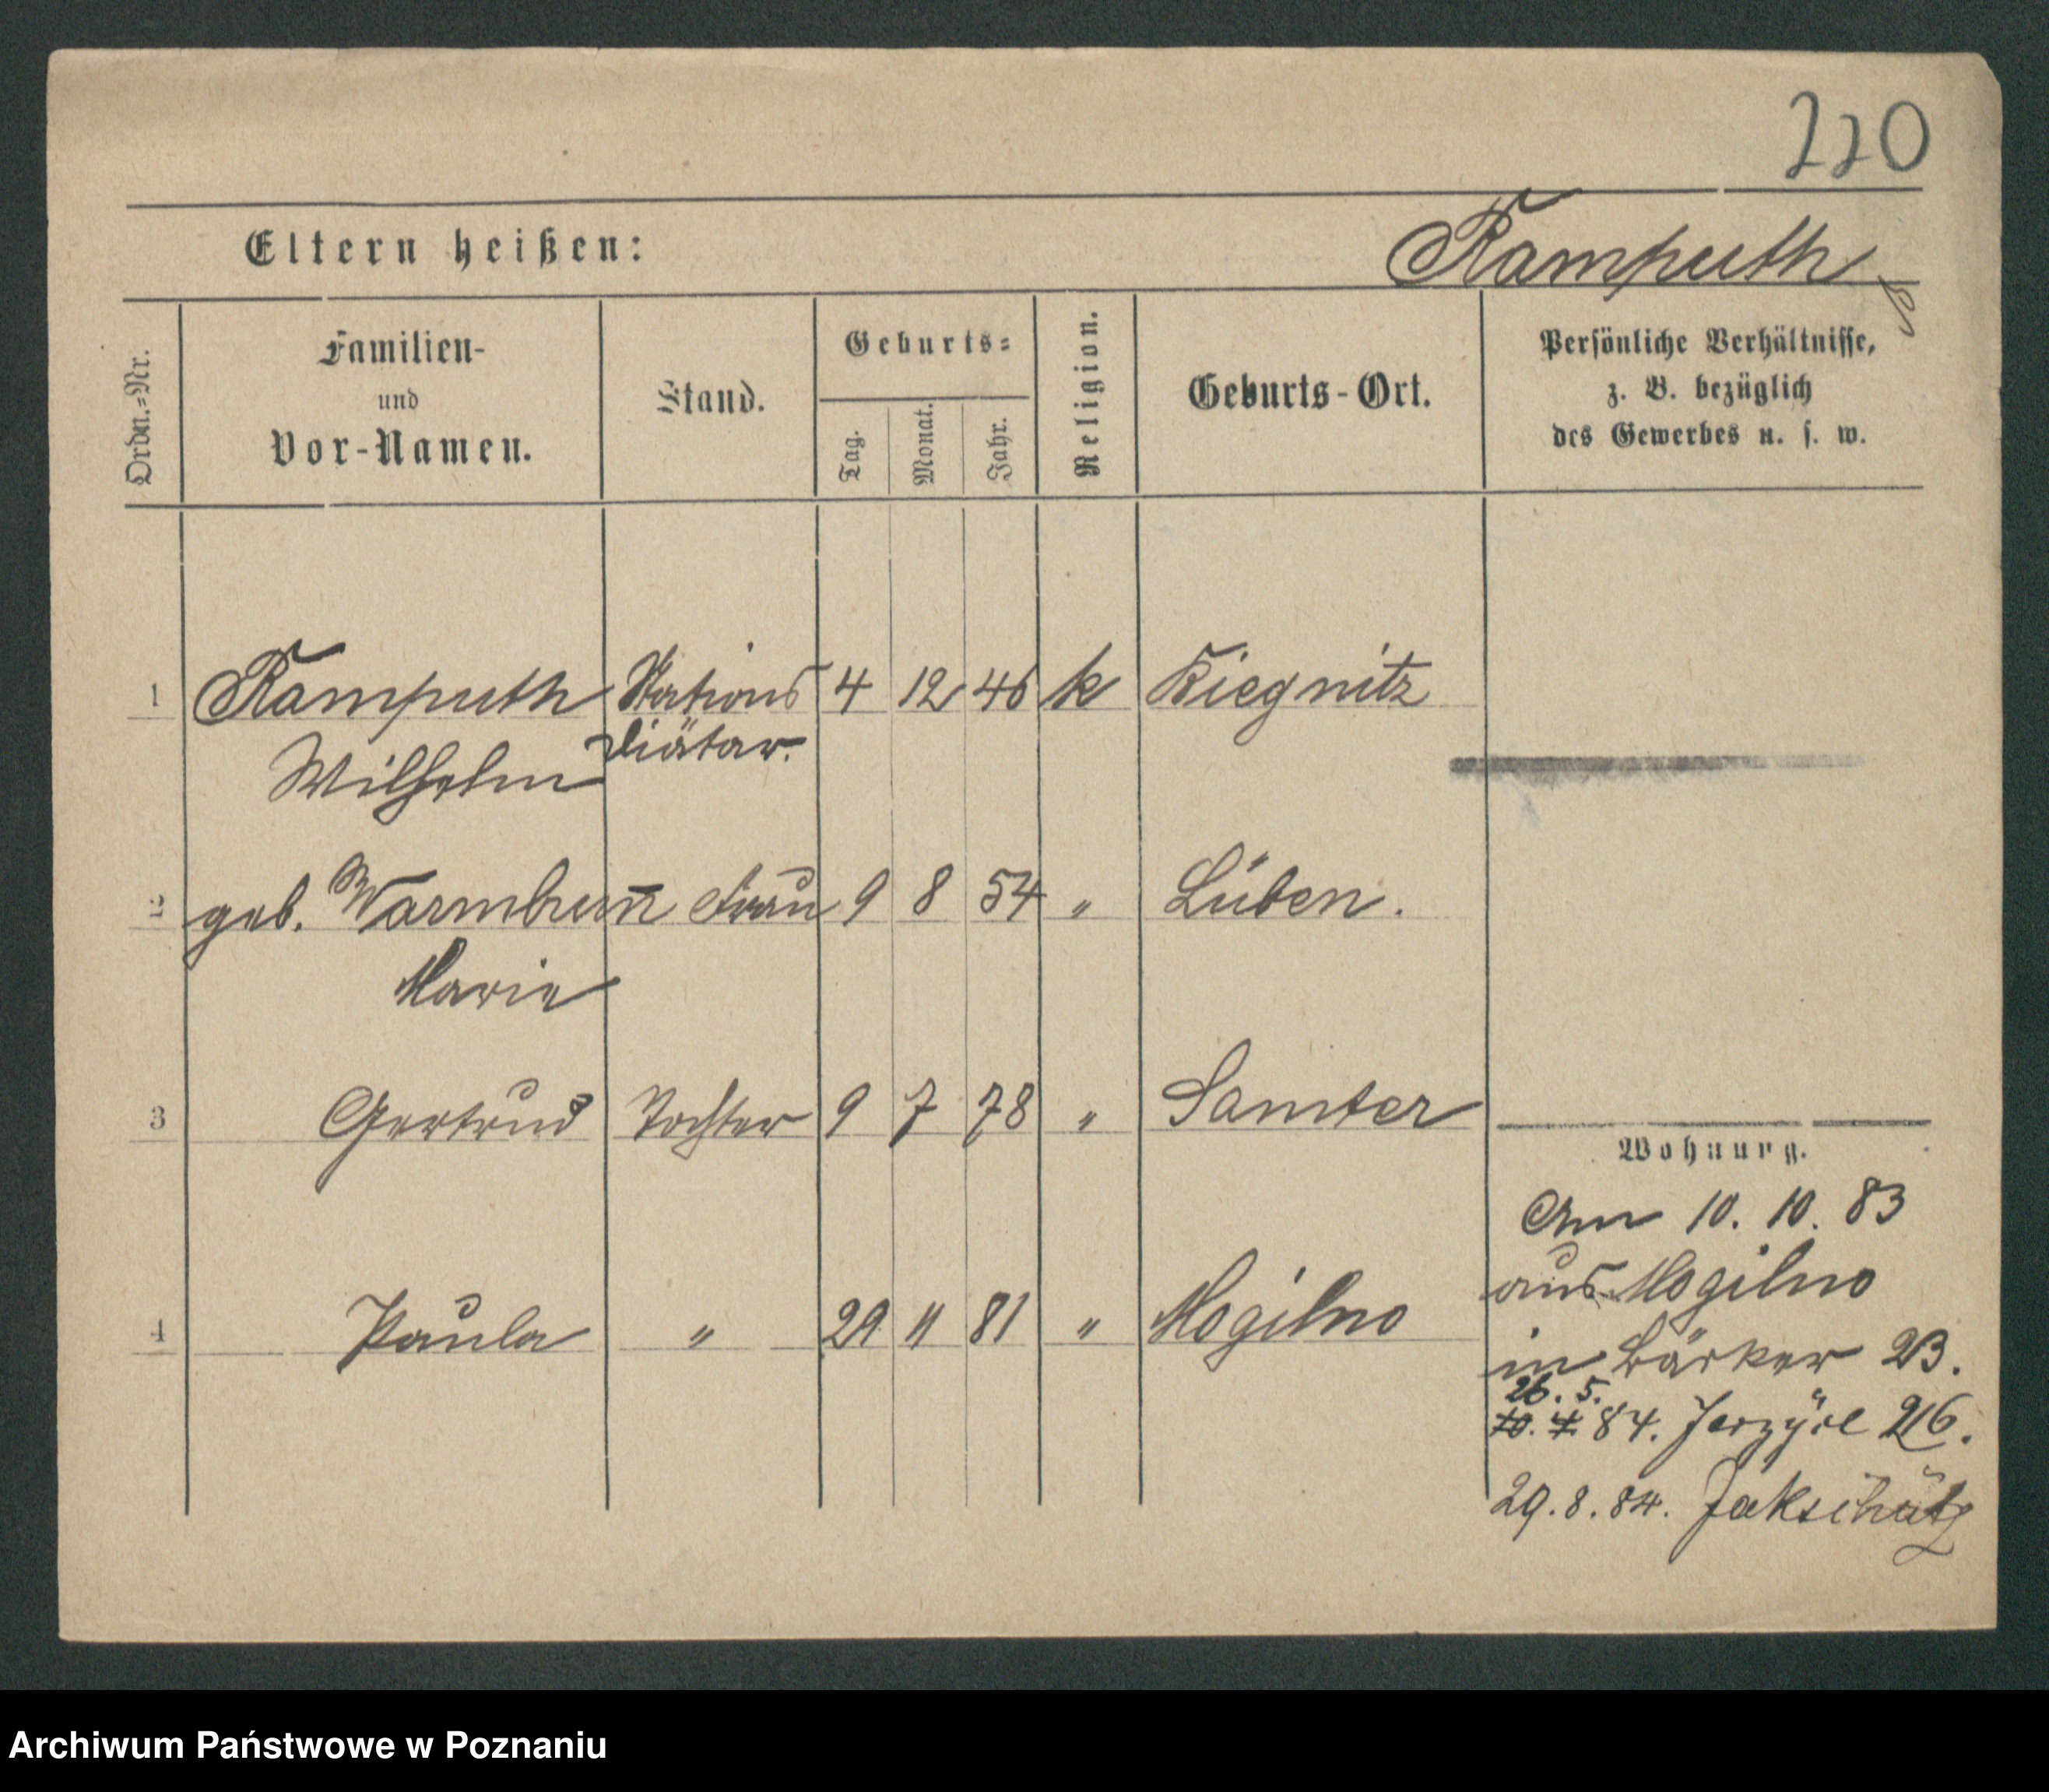 220
Eltern heißen:
Ramputh
Ordn.-Nr.
Familien-
und
Vor-Namen.
Stand.
Geburts-
Tag.
Monat.
Jahr.
Religion.
Geburts-Ort.
Persönliche Verhältnisse,
z. B. bezüglich
des Gewerbes u. s. w.
1 Ramputh Stations 4 12 46 k Liegnitz
Wilhelm Diätar.
2 geb. Warmbrun̄ Frau 9 8 54 " Lüben.
Marie
3 Gertrud Tochter 9 7 78 " Samter
4 Paula " 29 11 81 " Mogilno
Wohnung.
Am 10. 10. 83
aus Mogilno
in Bärker 23.
26. 5.
10. 4. 84. Jerzyce 216.
29. 8. 84. Jakschütz
Archiwum Państwowe w Poznaniu